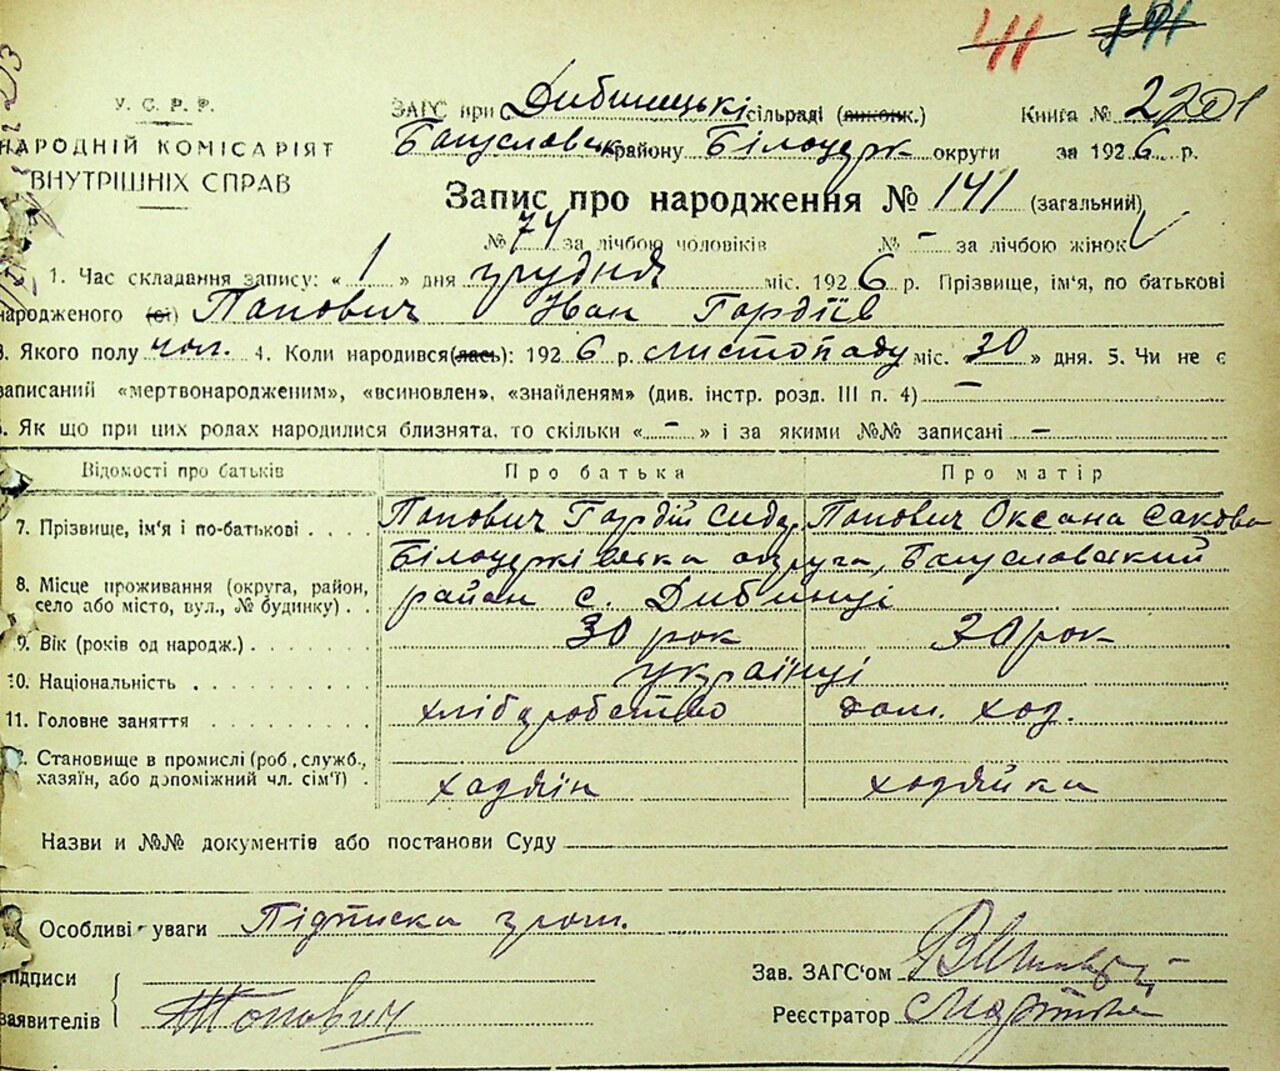 41
У. С. Р. Р.
НАРОДНІЙ КОМІСАРІЯТ
ВНУТРІШНІХ СПРАВ
ЗАГС при Дибинецькі сільраді (виконк.) Книга № 2201
Богуславськ району Білоцерк округи за 1926 р.
Запис про народження № 141 (загальний)
№ 74 за лічбою чоловіків № - за лічбою жінок
1. Час складання запису: « 1 » дня грудня міс. 1926 р. Прізвище, ім'я, по батькові
народженого (ої) Попович Іван Гордіїв
3. Якого полу чол. 4. Коли народився(лась): 1926 р. листопаду міс. 30 » дня. 5. Чи не є
записаний «мертвонародженим», «всиновлен», «знайленям» (див. інстр. розд. III п. 4) -
. Як що при цих родах народилися близнята, то скільки « - » і за якими №№ записані -
Відомості про батьків Про батька Про матір
7. Прізвище, ім'я і по-батькові . . . . Попович Гордій Сидор. Попович Оксана Сакова
8. Місце проживання (округа, район, село або місто, вул., № будинку) . . Білоцерківська округа, Богуславський
район с. Дибинці
9. Вік (років од народж.) . . . . . . . 30 рок 30 рок
10. Національність . . . . . . . . . українці
11. Головне заняття . . . . . . . . хліборобство дом. ход.
. Становище в промислі (роб., служб.,
хазяїн, або допоміжний чл. сім'ї) . хадяїн ходяйка
Назви и №№ документів або постанови Суду
Особливі уваги Підписка гром.
Підписи
заявителів Попович
Зав. ЗАГС'ом
Реєстратор